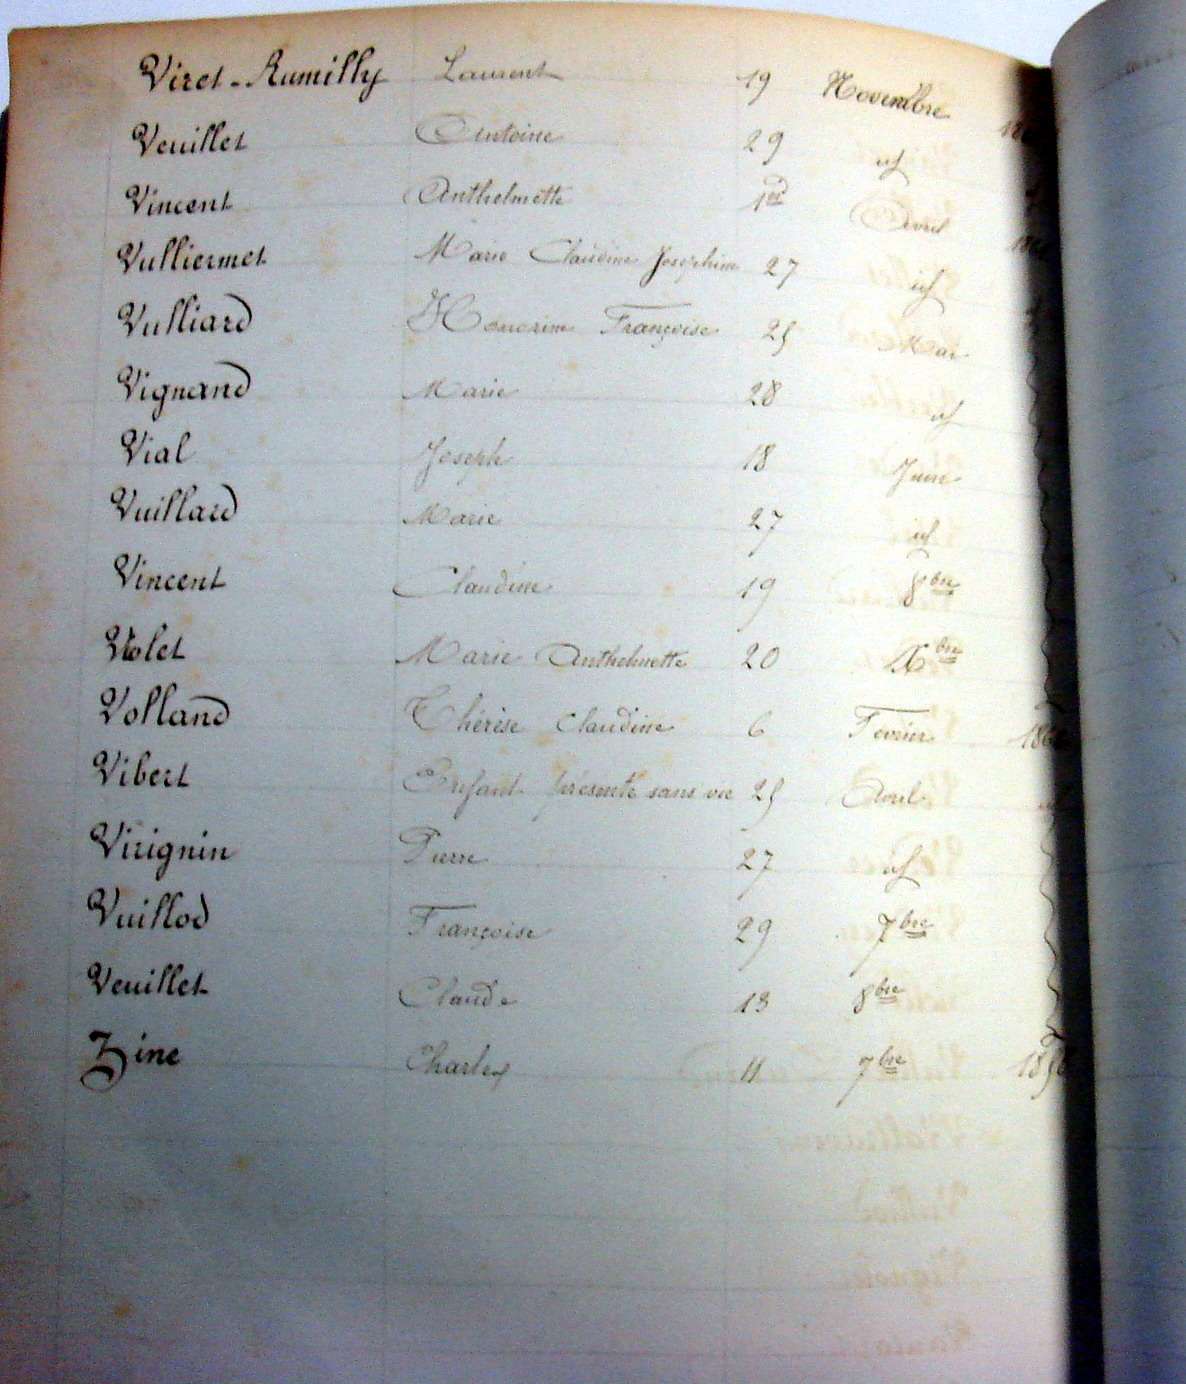 Viret-Rumilly Laurent 19 Novembre
Veuillet Antoine 29 id
Vincent Anthelmette 1er Avril
Vulliermet Marie Claudine Josephine 27 id
Vulliard Honorine Françoise 25 Mai
Vignand Marie 28 id
Vial Joseph 18 Juin
Vuillard Marie 27 id
Vincent Claudine 19 8bre
Violet Marie Anthelmette 20 Xbre
Volland Thérèse Claudine 6 Février
Vibert Enfant présenté sans vie 25 Avril
Virignin Pierre 27 id
Vuillod Françoise 29 7bre
Veuillet Claude 13 8bre
Zine Charles 11 7bre